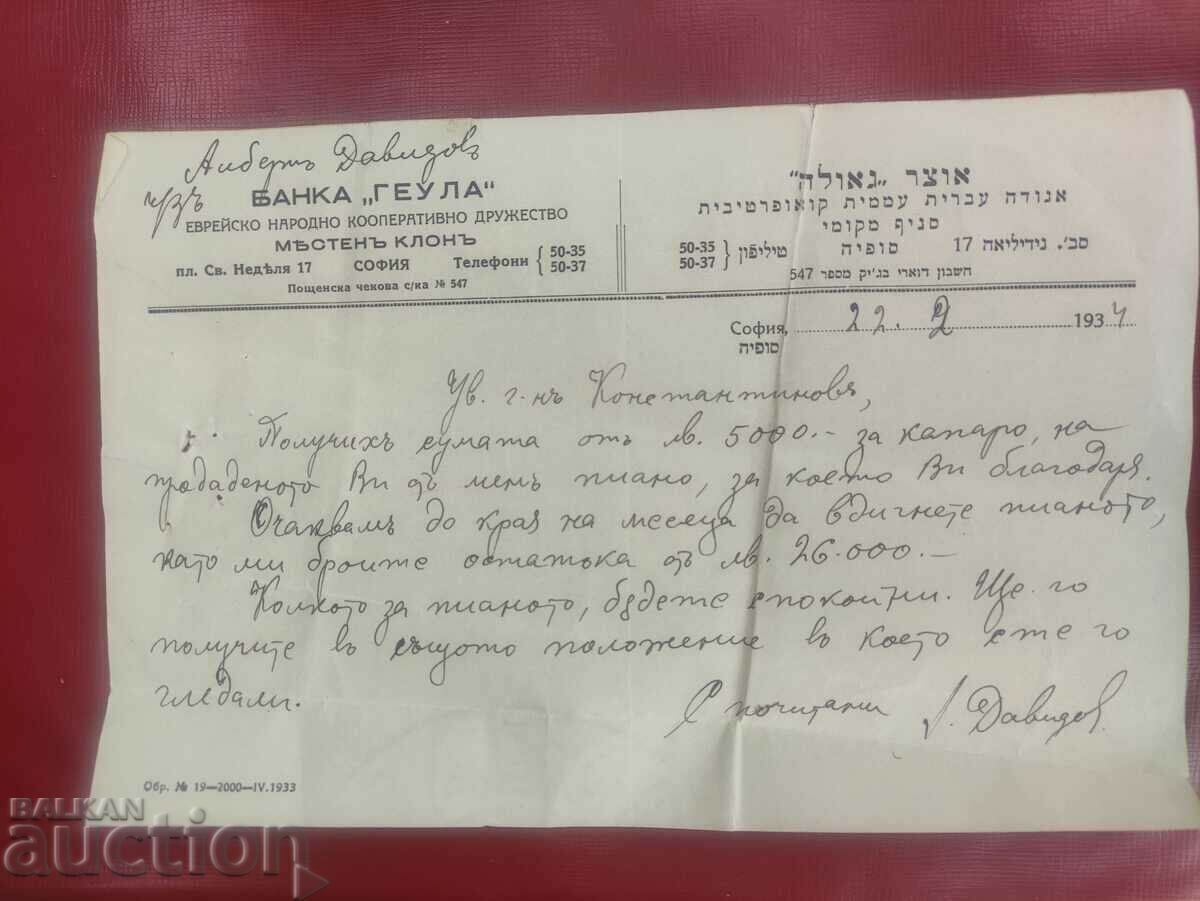 Албертъ Давидовъ
ч/зъ
БАНКА „ГЕУЛА“
ЕВРЕЙСКО НАРОДНО КООПЕРАТИВНО ДРУЖЕСТВО
МѢСТЕНЪ КЛОНЪ
пл. Св. Недѣля 17 СОФИЯ Телефони { 50-35 50-37
Пощенска чекова с/ка № 547
אוצר „גאולה"
אגודה עברית עממית קואופרטיבית
סניף מקומי
סב'. נידיליאה 17 סופיה טיליפון { 50-35 50-37
חשבון דוארי בג'יק מספר 547
София, 22. 2 1934
סופיה
Ув. г-нъ Константиновъ,
Получихъ сумата отъ лв. 5000.- за капаро, на
продаденото Ви отъ менъ пиано, за което Ви благодаря.
Очаквамъ до края на месеца да вдигнете пианото,
като ми броите остатока отъ лв. 26.000.-
Колкото за пианото, бѫдете спокойни. Ще го
получите въ същото положение въ което сте го
гледали.
С почитани А. Давидов.
Обр. № 19—2000—IV.1933
BALKAN
auction